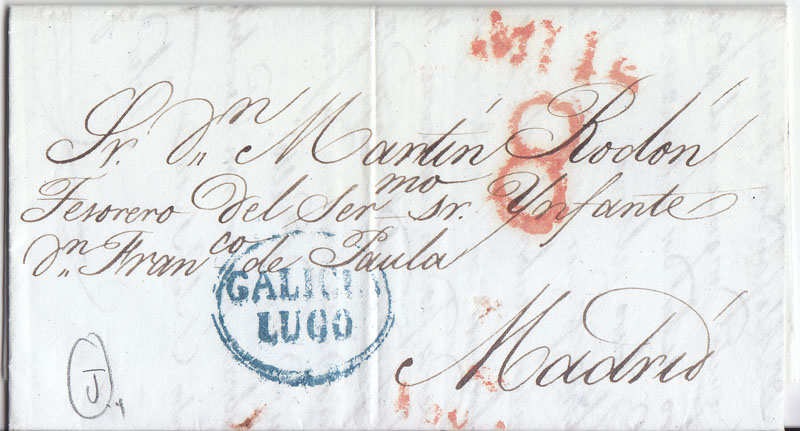 Sr. Dn. Martín Rodón
8
Tesorero del Sermo. sr. Ynfante
dn Franco de Paula
GALICIA
LUGO
Madrid
J